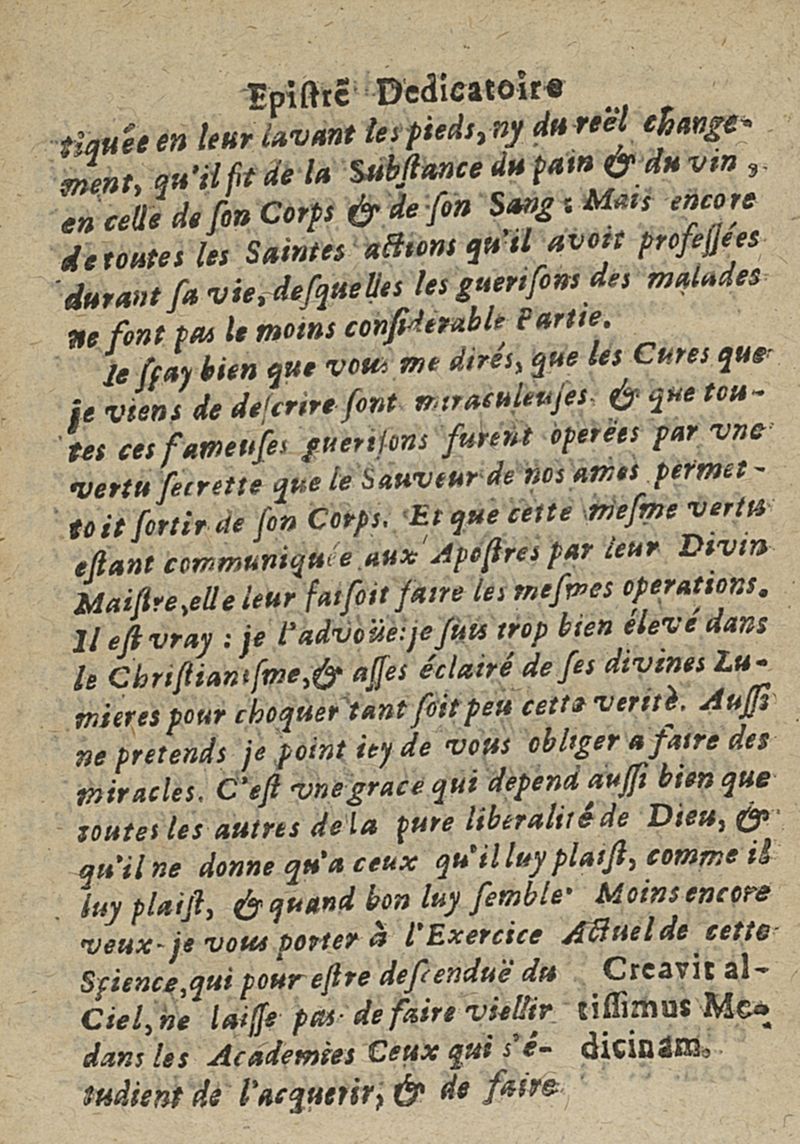 Epistrē Dedicatoire
tiquée en leur lavant les pieds, ny du reël change-
ment, qu'il fit de la Substance du pain & du vin,
en celle de son Corps & de son Sang : Mais encore
de toutes les Saintes actions qu'il avoit professées
durant sa vie, desquelles les guerisons des malades
ne font pas le moins considerable Partie.
Ie sçay bien que vous me dirés, que les Cures que
je viens de descrire sont miraculeuses. & que tou-
tes ces fameuses guerisons furent operées par vne
vertu secrette que le Sauveur de nos ames permet-
toit sortir de son Corps. Et que cette mesme vertu
estant communiquée aux Apostres par leur Divin
Maistre, elle leur faisoit faire les mesmes operations.
Il est vray : je l'advoüe: je suis trop bien élevé dans
le Christianisme, & asses éclairé de ses divines Lu-
mieres pour choquer tant soit peu cette veritè. Aussi
ne pretends je point icy de vous obliger a faire des
miracles. C'est vne grace qui depend aussi bien que
toutes les autres de la pure liberalité de Dieu, &
qu'il ne donne qu'a ceux qu'il luy plaist, comme il
luy plaist, & quand bon luy semble· Moins encore
veux-je vous porter à l'Exercice Actuel de cette
Sçience, qui pour estre descenduë du
Ciel, ne laisse pas de faire viellir
dans les Academies Ceux qui s'é-
tudient de l'acquerir, & de faire
Creavit al-
tissimus Me-
dicinam.